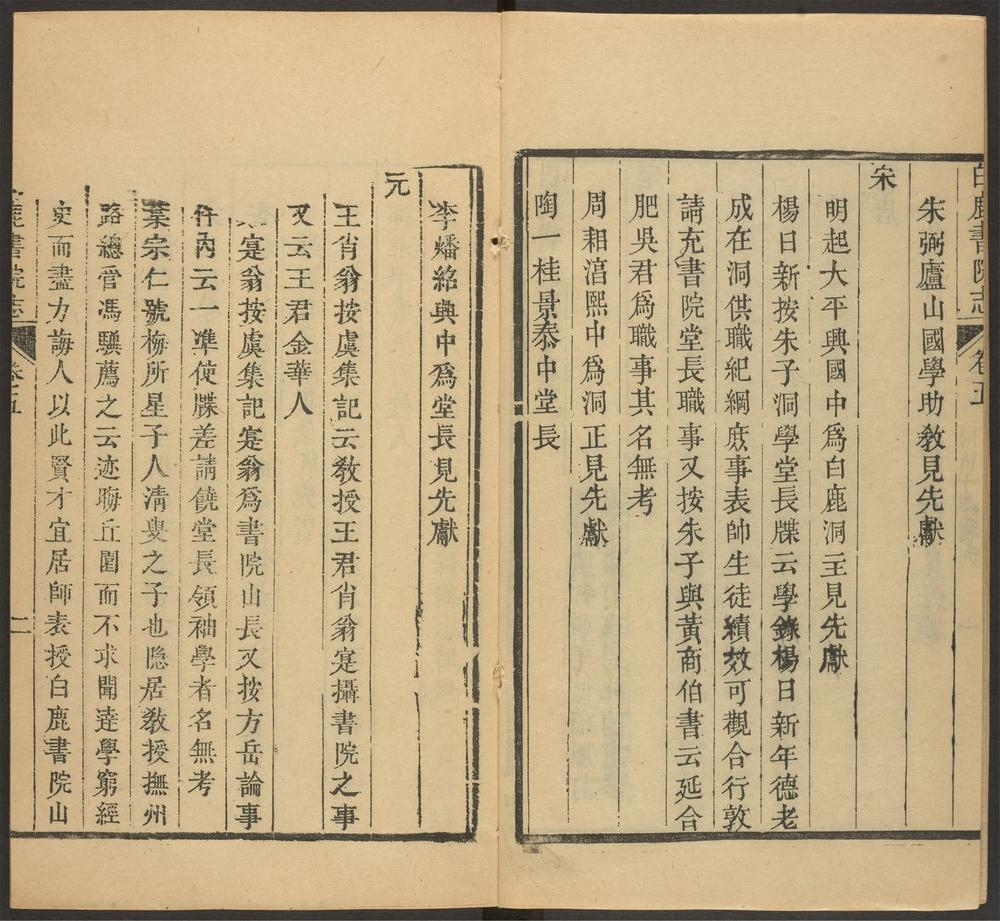 白鹿書院志 卷五
朱弼廬山國學助教見先獻
宋
明起大平興國中爲白鹿洞主見先獻
楊日新按朱子洞學堂長牒云學錄楊日新年德老
成在洞供職紀綱庶事表帥生徒績效可觀合行敦
請充書院堂長職事又按朱子與黃商伯書云延合
肥吳君爲職事其名無考
周耜淳熙中爲洞正見先獻
陶一桂景泰中堂長
李燔紹興中爲堂長見先獻
元
王肖翁按虞集記云教授王君肖翁寔攝書院之事
又云王君金華人
寔翁按虞集記寔翁爲書院山長又按方岳論事
件內云一準使牒差請饒堂長領袖學者名無考
葉宗仁號梅所星子人清叟之子也隐居教授撫州
路總管馮驥薦之云迹晦丘園而不求聞達學窮經
史而盡力誨人以此賢才宜居師表授白鹿書院山
鹿書院志 卷五 二